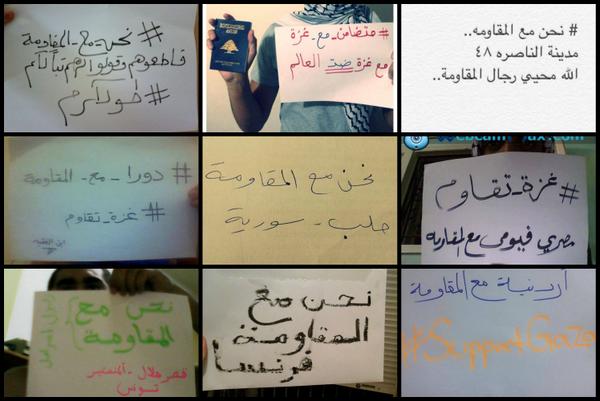 # نحن_مع_المقاومة
قاطعوهم وقولوا لهم تبا لكم
# طولكرم
# متضامن_مع_غزة
مع غزة ضد العالم
# نحن مع المقاومه..
مدينة الناصره ٤٨
الله محيي رجال المقاومة..
# دورا_مع_المقاومة
# غزة_تقاوم
نحن مع المقاومة
حلب - سورية
# غزة_تقاوم
مصري فيومي مع المقاومة
نحن مع
المقاومة
قصر هلال - المنستير
تونس
نحن مع
المقاومة
فرنسا
أردنية مع المقاومة
#SupportGaza